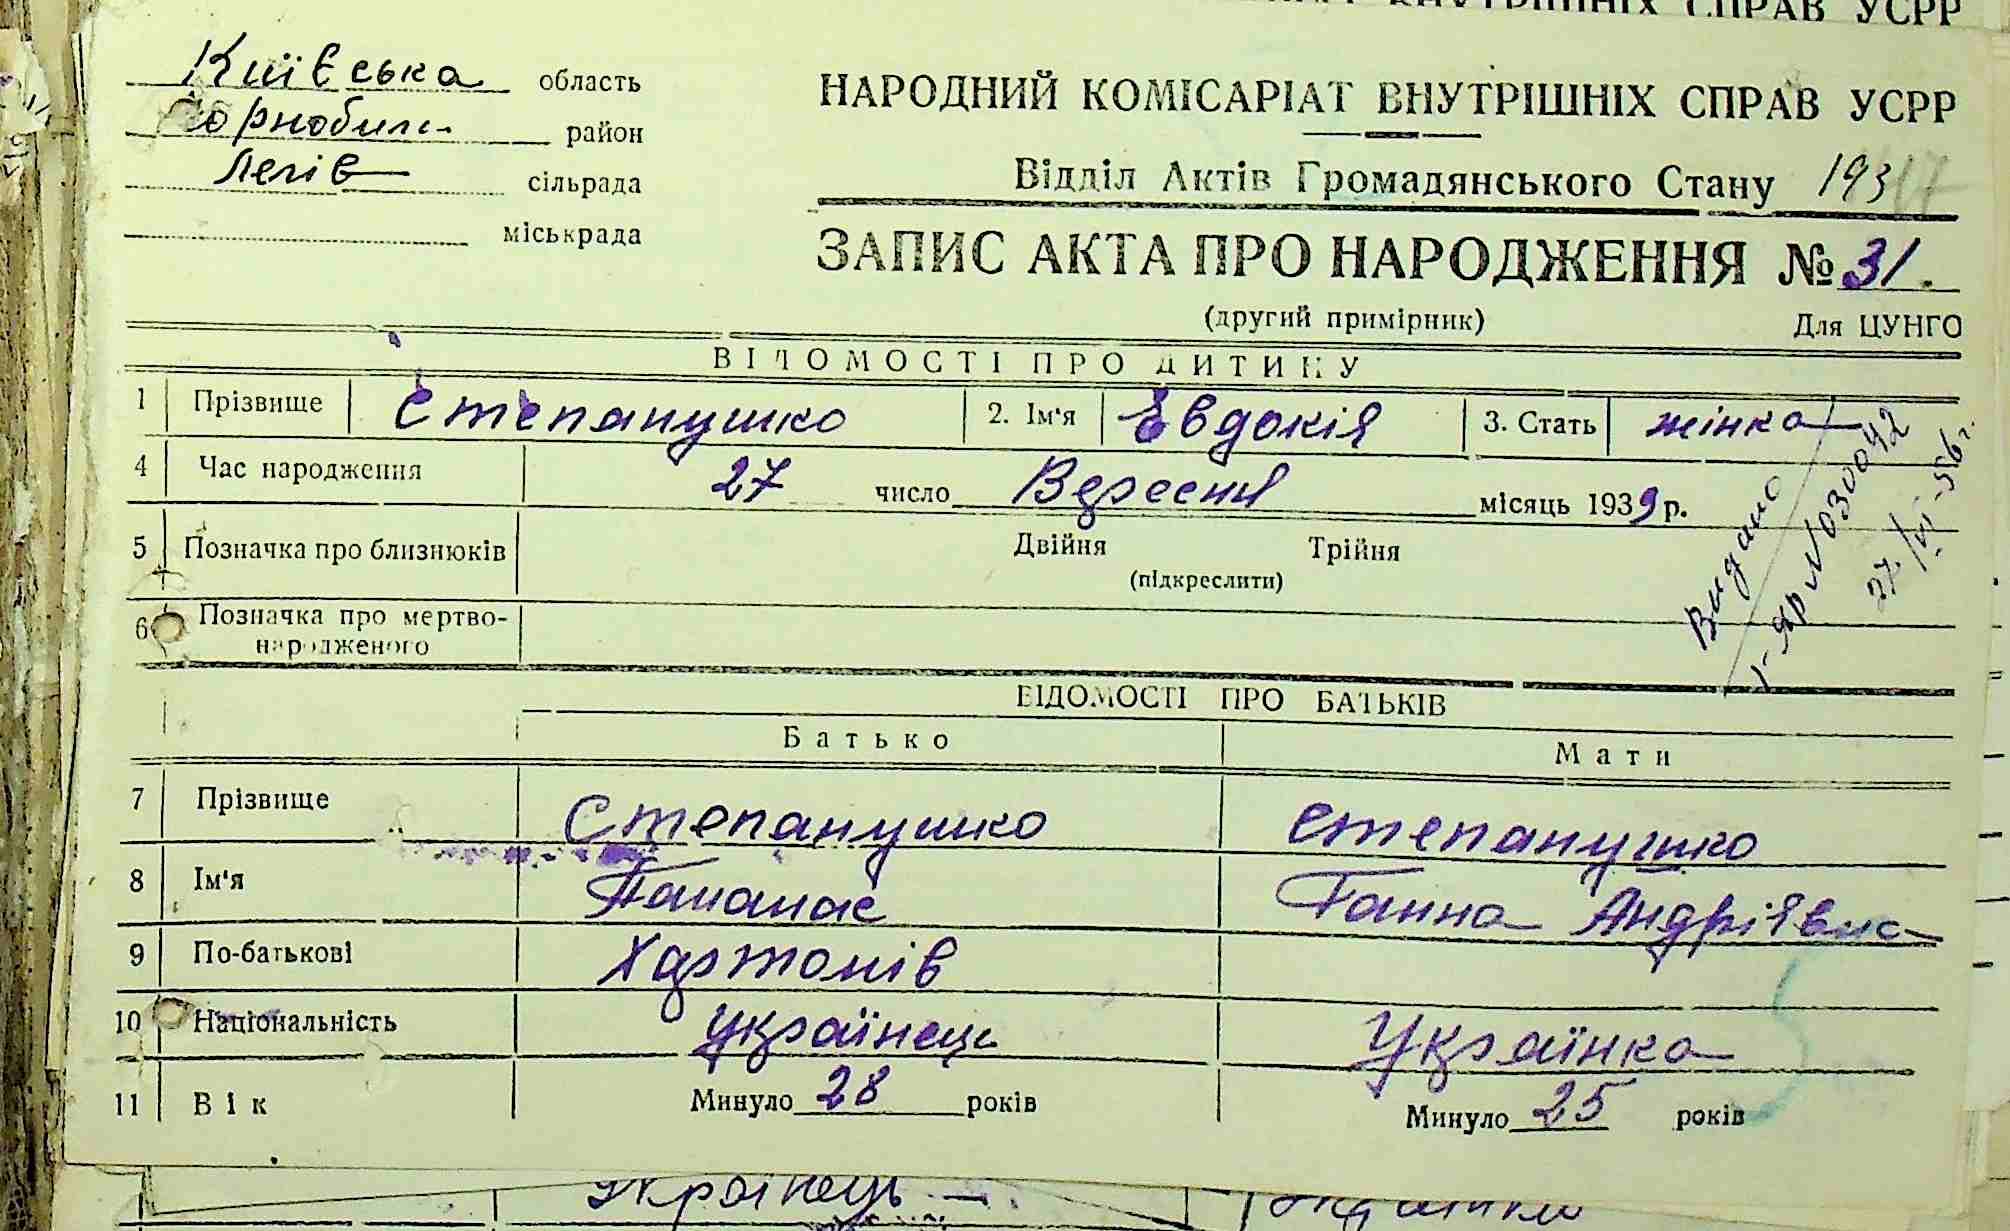 ВНУТРІШНІХ СПРАВ УСРР
Київська область
Чорнобильс. район
сільрада
міськрада
НАРОДНИЙ КОМІСАРІАТ ВНУТРІШНІХ СПРАВ УСРР
Відділ Актів Громадянського Стану 193
ЗАПИС АКТА ПРО НАРОДЖЕННЯ № 31.
(другий примірник) Для ЦУНГО
ВІДОМОСТІ ПРО ДИТИНУ
1 Прізвище Степанушко 2. Ім'я Евдокія 3. Стать жінка
4 Час народження 27 число Вересня місяць 1939 р.
5 Позначка про близнюків Двійня Трійня
(підкреслити)
6 Позначка про мертво-
народженого
Видано
27/VI-56 г.
ВІДОМОСТІ ПРО БАТЬКІВ
Батько Мати
7 Прізвище Степанушко Степанушко
8 Ім'я Пананас Ганна Андріївна
9 По-батькові Хартонів
10 Національність Українець Українка
11 Вік Минуло 28 років Минуло 25 років
Українець